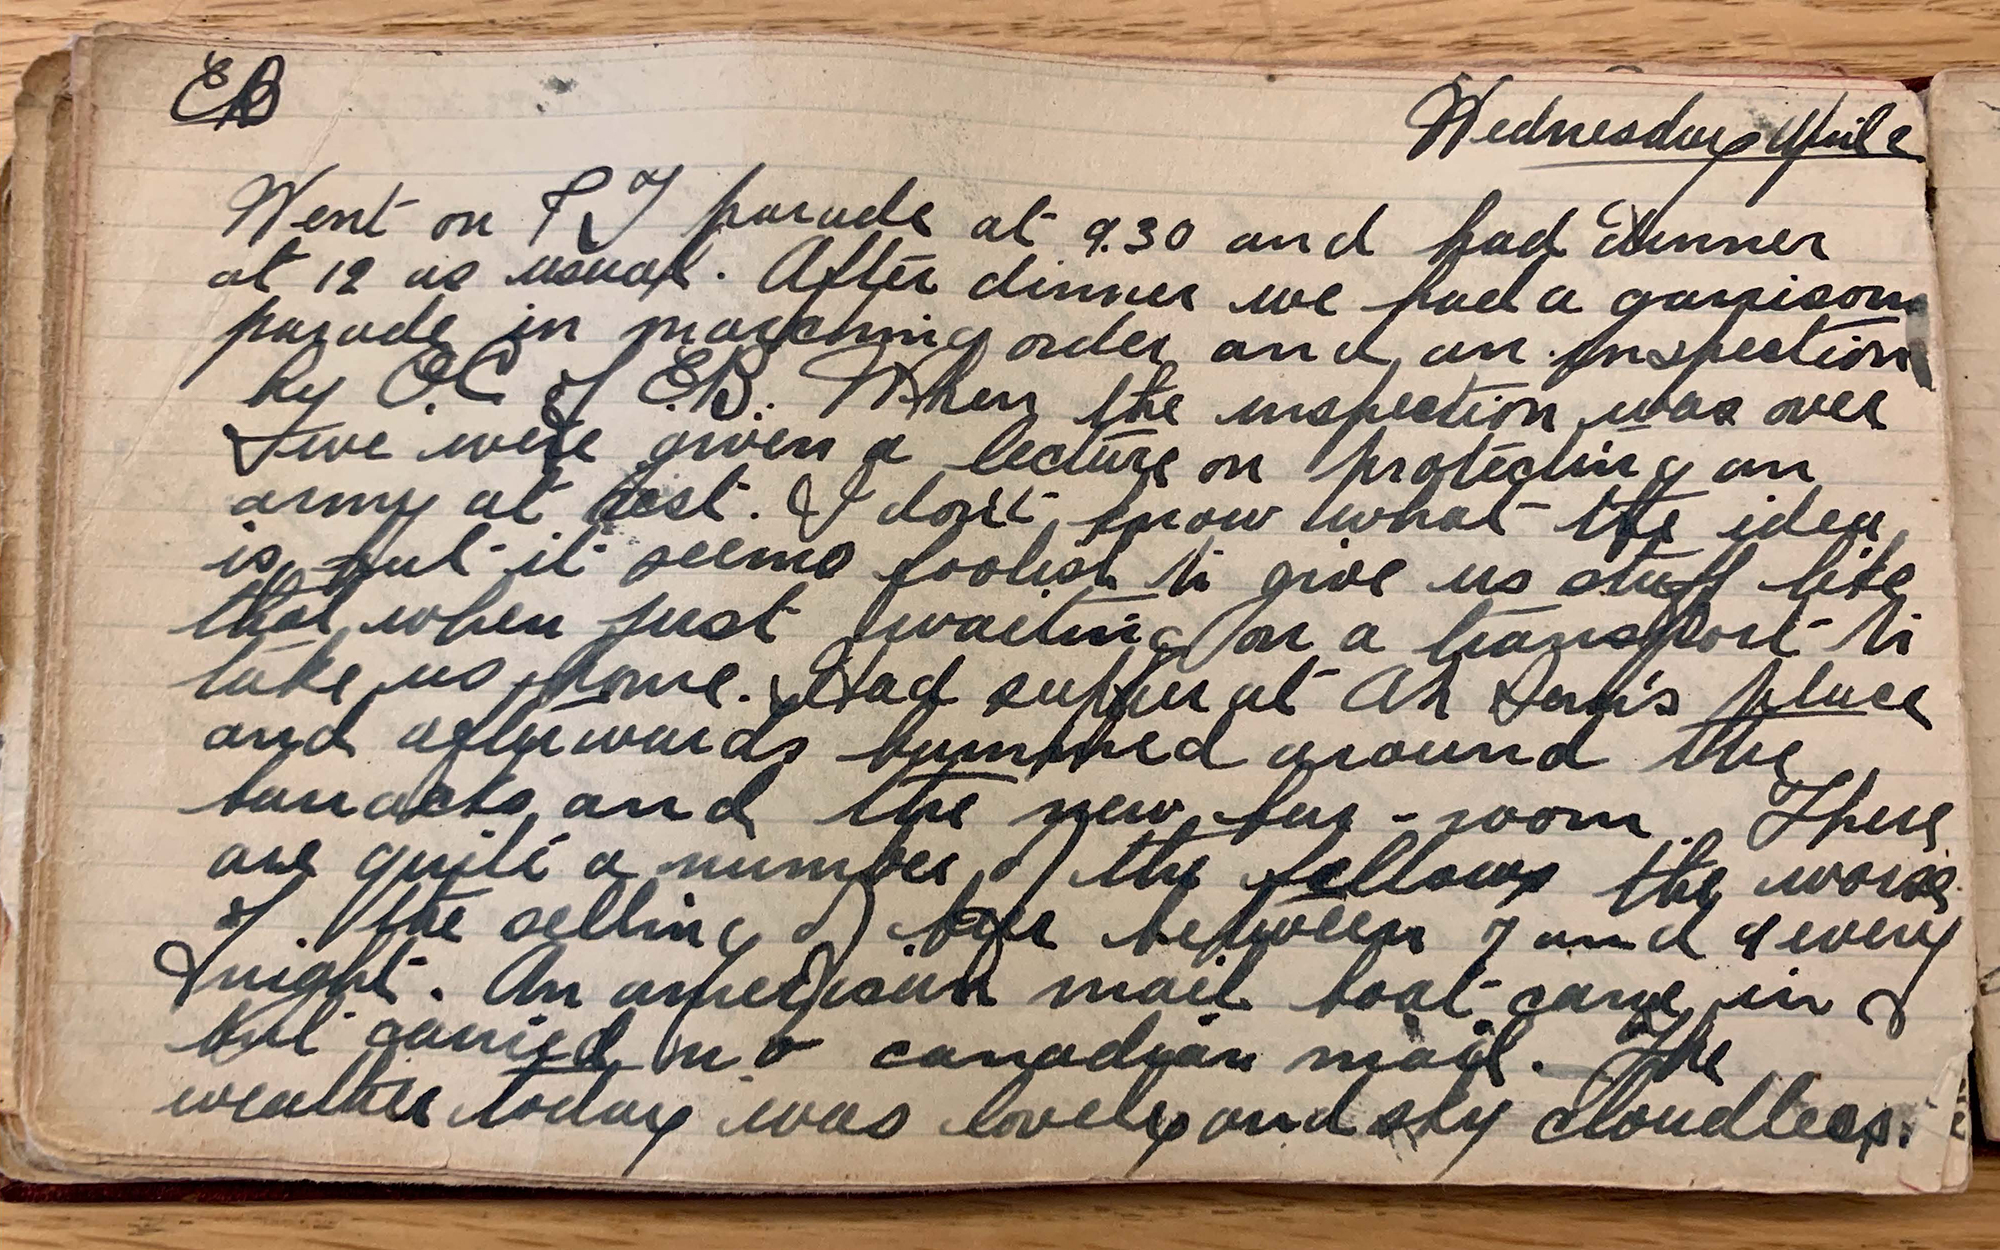 EB
Wednesday April 2
Went on P.T parade at 9.30 and had dinner
at 12 as usual. After dinner we had a garrison
parade in marching order and an inspection
by O.C. of E.B. When the inspection was over
we were given a lecture on protecting an
army at rest. I don't know what the idea
is, but it seems foolish to give us stuff like
that when just waiting on a transport to
take us home. Had supper at Ah
place
and afterwards bummed around the
barracks and the new bar-room. There
are quite a number of the fellows the worse
of the selling of beer between 7 and 9 every
night. An american mail boat came in
but carried no canadian mail. The
weather today was lovely and sky cloudless.